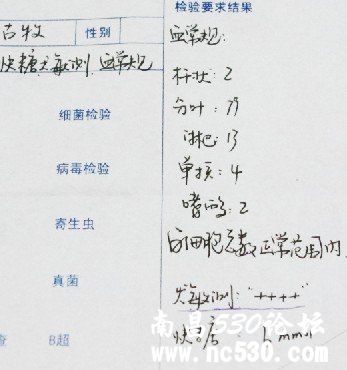 检验要求结果
古牧 性别
血常规:
快糖 犬瘟测 血常规
杆状: 2
分叶: 79
细菌检验
淋巴: 13
病毒检验
单核: 4
嗜酸: 2
寄生虫
白细胞总数正常范围内
真菌
犬瘟测: "++++"
南昌530论坛
B超
快
mmol
www.nc530.com